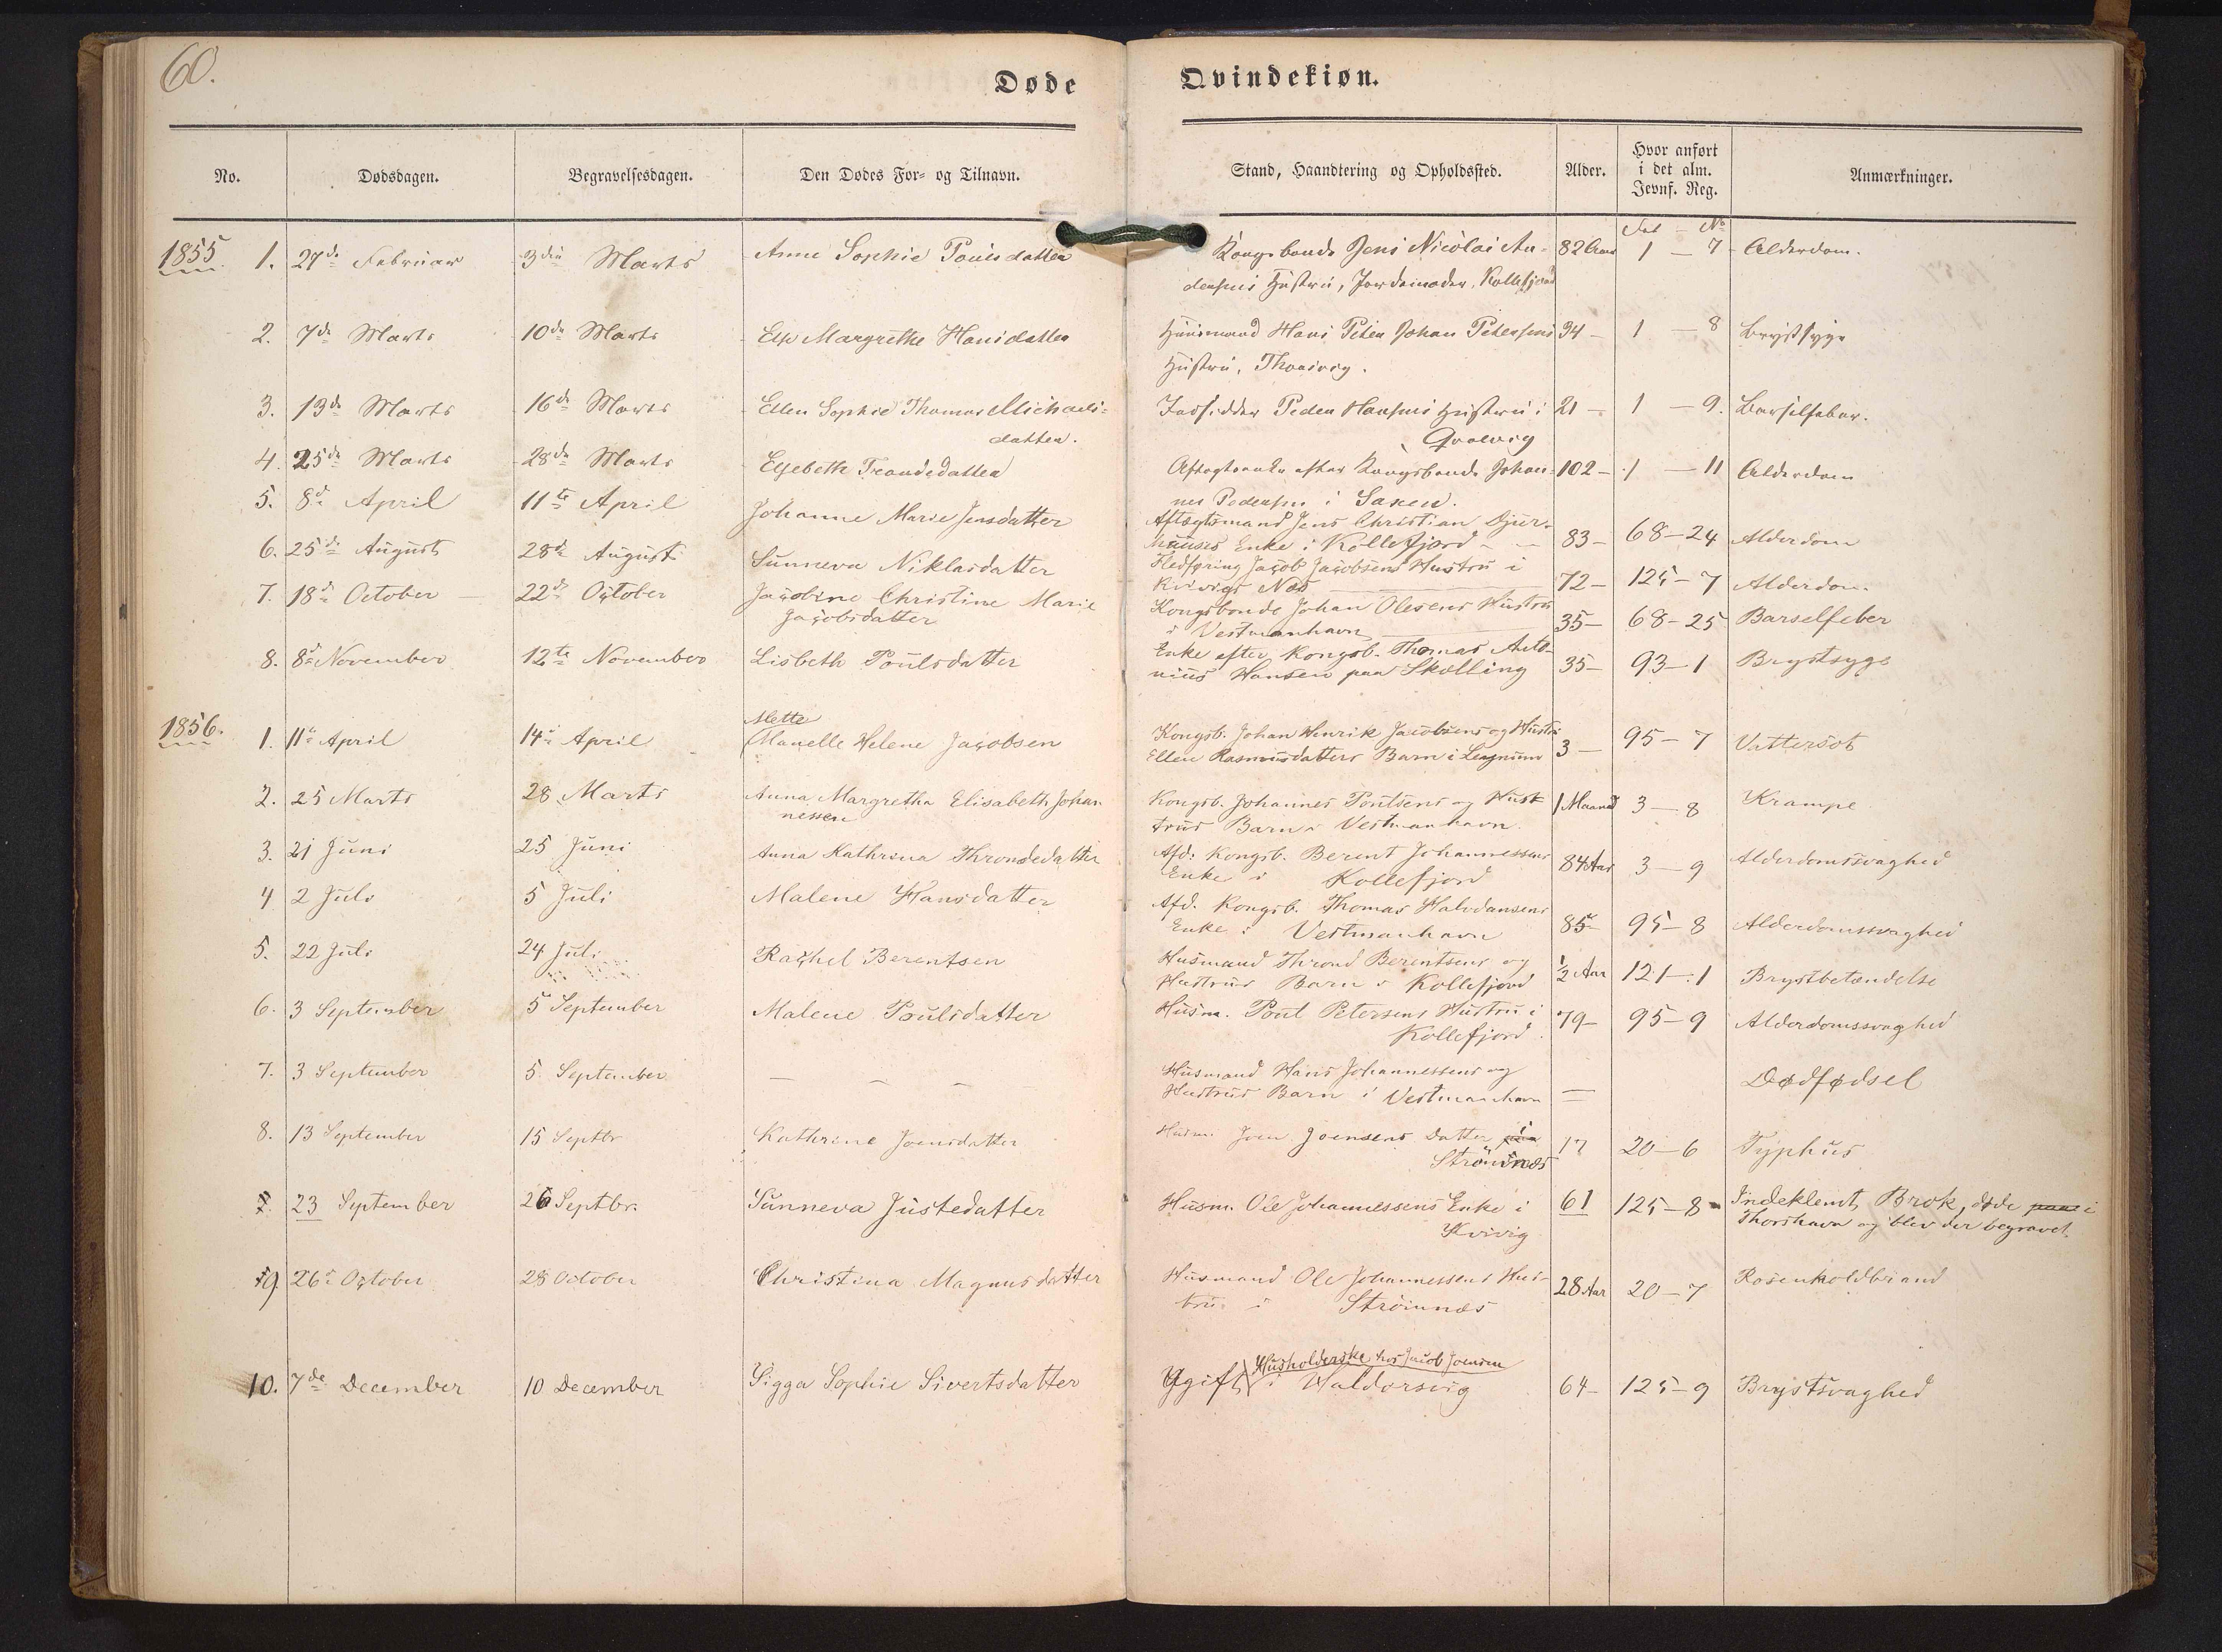 60.
Døde Qvindekiøn.
No. Dødsdagen. Begravelsesdagen. Den Dødes For- og Tilnavn. Stand, Haandtering og Opholdssted. Alder. Hvor anført i det alm. Jevnf. Reg. Anmærkninger.
Fol – No
1855 1. 27de Februar 3die Marts Anne Sophie Poulsdatter Kongsbonde Jens Nicolai An- 82 Aar 1 – 7 Alderdom.
dersens Hustru, Jordemoder, Kollefjord
2. 7de Marts 10de Marts Else Margrethe Hansdatter Huusmand Hans Peter Johan Petersens 34 – 1 – 8 Brystsyge
Hustru, Thorsvig.
3. 13de Marts 16de Marts Ellen Sophie Thomas Michaels- Indsidder Peder Hansens Hustru i 21 – 1 – 9. Barselfeber.
datter. Qvalvig
4. 25de Marts 28de Marts Elsebeth Trondsdatter Aftægtsenke efter Kongsbonde Johan- 102 – 1 – 11 Alderdom
nes Pedersen i Saxen.
5. 8de April 11te April Johanne Marie Jensdatter Aftægtsmand Jens Christian Djur-
huuses Enke i Kollefjord – – 83 – 68 – 24 Alderdom
6. 25de August 28de August Sunneva Niklasdatter Hedføring Jacob Jacobsens Hustru i
Kvivigs Næs 72 – 125 – 7 Alderdom.
7. 18de October – 22de October Jacobine Christine Marie Kongsbonde Johan Olesens Hustru
Jacobsdatter i Vestmanhavn 35 – 68 – 25 Barselfeber
8. 8de November 12te November Lisbeth Poulsdatter Enke efter Kongsb. Thomas Anto-
nius Hansen paa Skælling 35 – 93 – 1 Brystsyge
1856. 1. 11te April 14de April Mette
Manelle Helene Jacobsen Kongsb. Johan Henrik Jacobsens og Hustru
Ellen Rasmusdatters Barn i Leynum 3 – 95 – 7 Vattersot
2. 25 Marts 28 Marts Anna Margretha Elisabeth Johan- Kongsb. Johannes Poulsens og Hust 1 Maaned 3 – 8 Krampe
nessen trus Barn i Vestmanhavn.
3. 21 Juni 25 Juni Anna Kathrina Throndedatter Afd. Kongsb. Berent Johannessens 84 Aar 3 – 9 Alderdomssvaghed
Enke i Kollefjord
4 2 Juli 5 Juli Malene Hansdatter Afd. Kongsb. Thomas Halvdansens
Enke i Vestmanhavn 85 – 95 – 8 Alderdomssvaghed
5. 22 Juli 24 Juli Rachel Berentsen Husmand Thrond Berentsens og
Hustrus Barn i Kollefjord 1/2 Aar 121 – 1 Brystbetændelse
6. 3 September 5 September Malene Poulsdatter Husm. Poul Petersens Hustru i 79 – 95 – 9 Alderdomssvaghed
Kollefjord.
7. 3 September 5 September – – – Husmand Hans Johannessens og
Hustrus Barn i Vestmanhavn = Dødfødsel
8. 13 September 15 Septbr Kathrine Joensdatter Husm. Joen Joensens Datter i 17 20 – 6 Typhus
Strømnæs
23 September 26 Septbr. Sunneva Justedatter Husm. Ole Johannessens Enke i 61 125 – 8 Indeklemt Brok, døde paa i
Kvivig Thorshavn og blev der begravet.
9. 26de October 28 October Christina Magnusdatter Husmand Ole Johannessens Hus- 28 Aar 20 – 7 Rosenkoldbrand
tru i Strømnæs
Husholderske hos Jacob Joensen
10. 7de December 10 December Sigga Sophie Sivertsdatter Ugift i Haldorsvig 64 – 125 – 9 Brystsvaghed